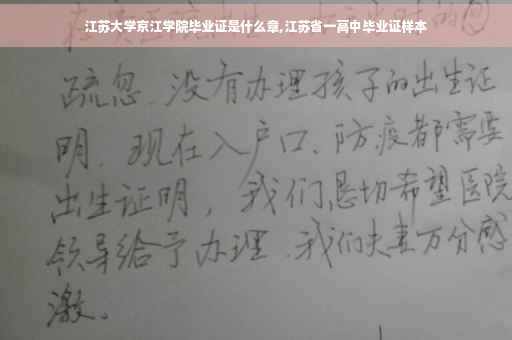 江苏大学京江学院毕业证是什么章,江苏省一高中毕业证样本
疏忽、没有办理孩子的出生证
明.现在入户口、防疫都需要
出生证明,我们恳切希望医院
领导给予办理.我们夫妻万分感
激。